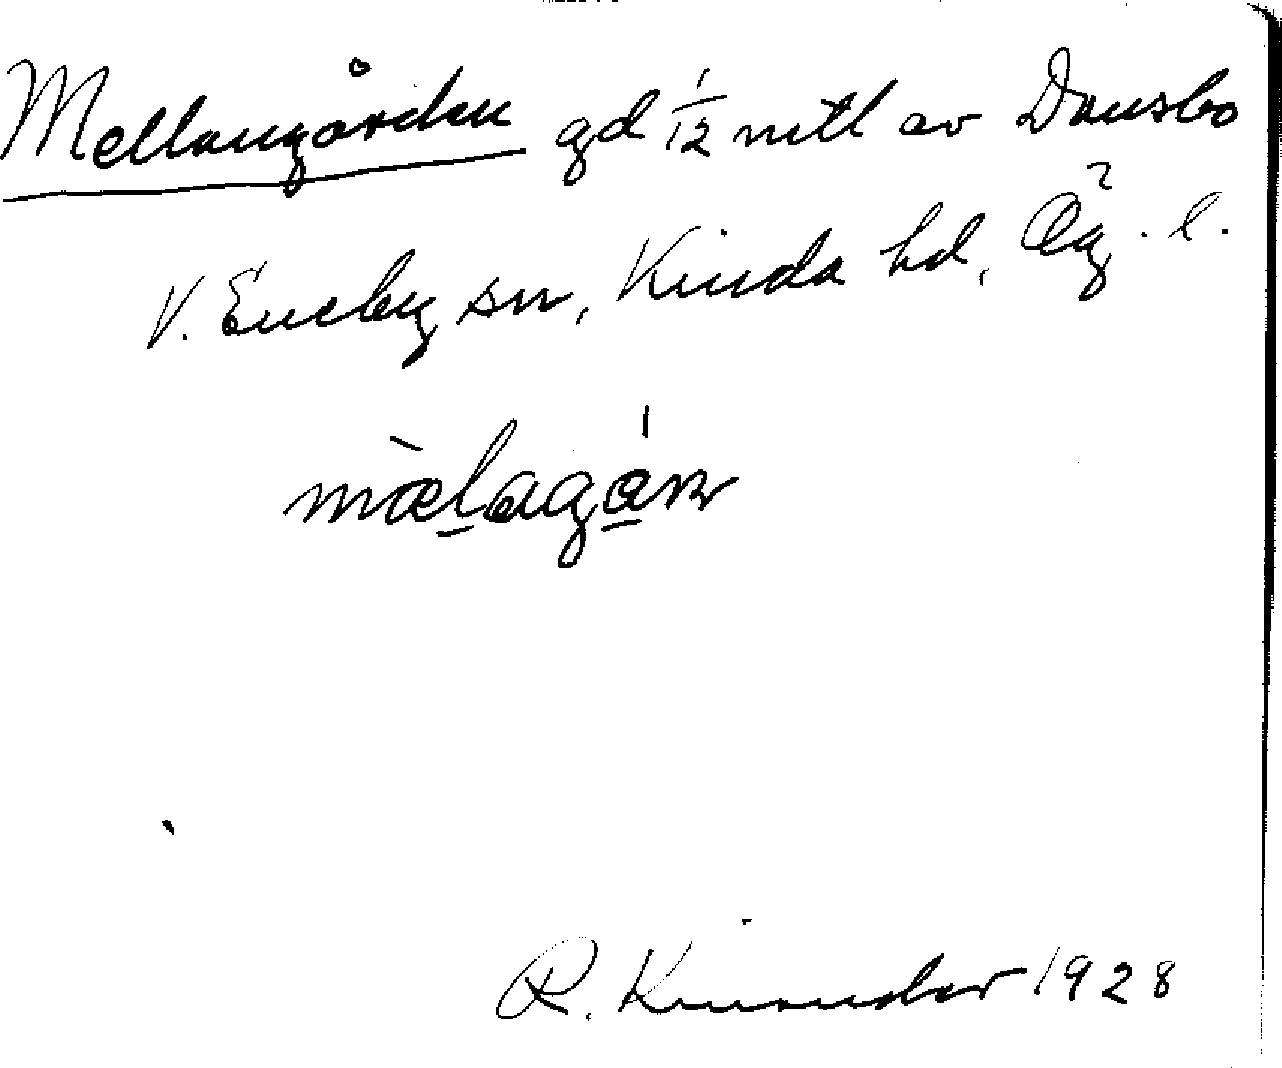 Mellangården gd 1/12 mtl av Dansbo
V. Eneby sn, Kinda hd, Ög. l.
R. Kinander 1928